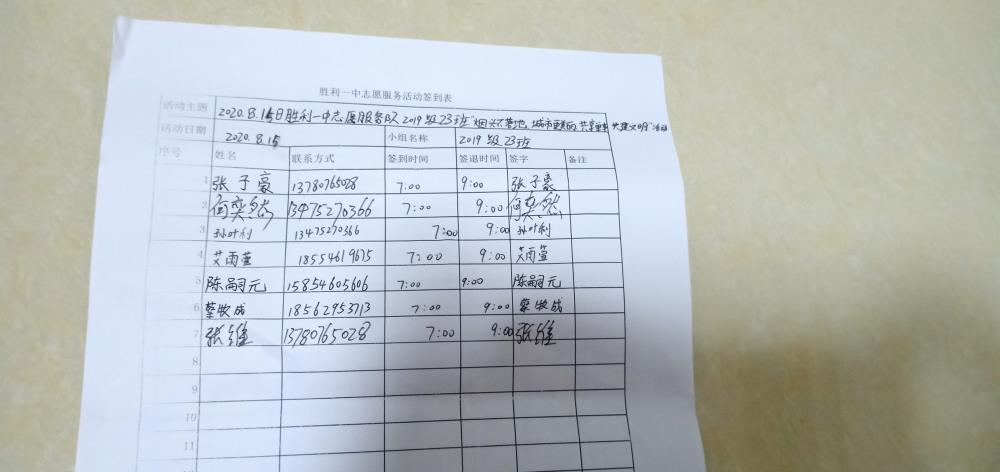 胜利一中志愿服务活动签到表
活动主题 2020.8.15日胜利一中志愿服务队2019级23班"烟头不落地,城市更美丽,共享单车 共建文明"活动
活动日期 2020.8.15 小组名称 2019级23班
序号 姓名 联系方式 签到时间 签退时间 签字 备注
1 张子豪 13780765028 7:00 9:00 张子豪
2 何奕然 13475270366 7:00 9:00 何奕然
3 孙叶利 13475270366 7:00 9:00 孙叶利
4 艾雨萱 18554619675 7:00 9:00 艾雨萱
5 陈嗣元 15854605606 7:00 9:00 陈嗣元
6 蔡牧成 18562953713 7:00 9:00 蔡牧成
7 张维 13780765028 7:00 9:00 张维
8
9
10
11